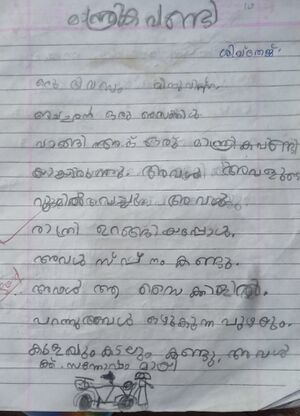 മാന്ത്രിക വണ്ടി
ഒരു ദിവസം
അച്ഛൻ ഒരു സൈക്കിൾ
വാങ്ങി അത് ഒരു മാന്ത്രിക വണ്ടി
യായിരുന്നു. അവൾ അവളുടെ
റൂമിൽ അവൾ
രാത്രി ഉറങ്ങിയപ്പോൾ.
അവൾ സ്വപ്നം കണ്ടു.
അവൾ ആ സൈക്കിളിൽ.
പറന്നു അവൾ ഒഴുകുന്ന പുഴയും.
കുളവും കടലും കണ്ടു, അവൾ
ക്ക് സന്തോഷം മായി